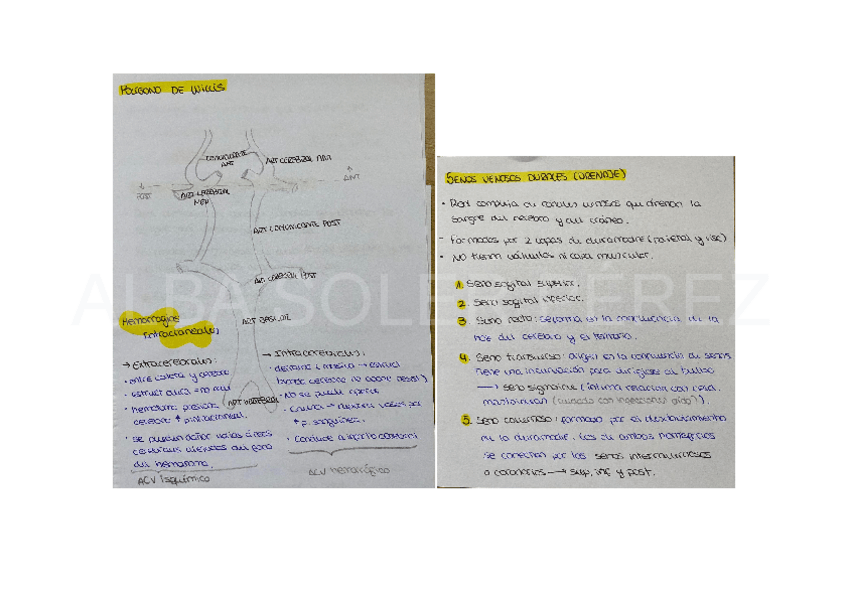 POLÍGONO DE WILLIS
COMUNICANTE ANT
ART CEREBRAL ANT
ANT
POST
ART CEREBRAL MED
ART COMUNICANTE POST
ART CEREBRAL POST
ART BASILAR
ART VERTEBRAL
Hemorragias
Intracraneales
→ Extracerebrales:
• entre calota y cerebro
• hematoma presiona
cerebro
• se pueden dañar varias áreas
del hematoma.
ACV Isquémico
→ Intracerebrales.
• No se puede operar
+ p. sanguínea.
• Conduce a
ACV Hemorrágico
SENOS VENOSOS DURALES (DRENAJE)
• Red compleja de canales venosos que drenan la
sangre del cerebro y del cráneo.
- Formados por 2 capas de duramadre (parietal y visc)
• No tienen válvulas ni capa muscular.
1. Seno sagital superior.
2. Seno sagital inferior.
3. Seno recto: se forma en la confluencia de la
hoz del cerebro y el tentorio.
4. Seno transverso: dirige en la confluencia de senos
tiene una incurvación para dirigirse al bulbo
→ seno sigmoideo (íntima relación con celd.
mastoideas (cuidado con infecciones oído!).
5. Seno cavernoso: formado por el desdoblamiento
de la duramadre. Los de ambos hemisferios
se conectan por los senos intercavernosos
o coronarios → sup, inf y post.
ALBA SOLER PÉREZ